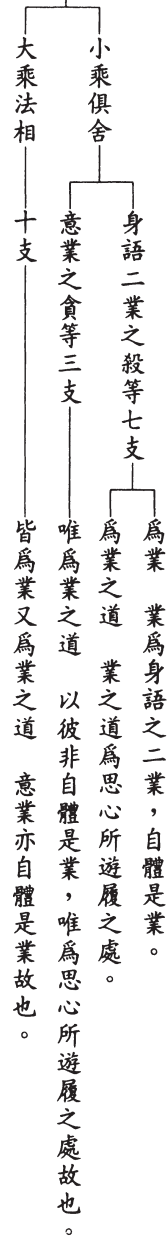 小乘俱舍
身語二業之殺等七支
爲業　業爲身語之二業，自體是業。
爲業之道　業之道爲思心所遊履之處。
意業之貪等三支
唯爲業之道　以彼非自體是業，唯爲思心所遊履之處故也。
大乘法相
十支
皆爲業又爲業之道　意業亦自體是業故也。